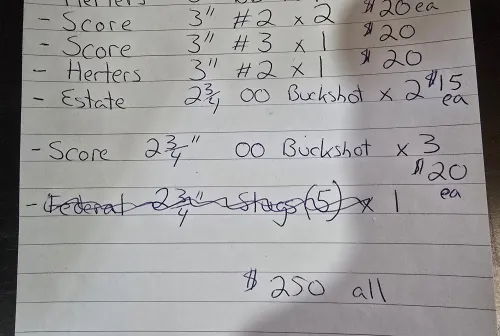 - Score 3" #2 x 2 $20 ea
- Score 3" #3 x 1 $20
- Herters 3" #2 x 1 $20
- Estate 2 3/4 00 Buckshot x 2 $15 ea
- Score 2 3/4" 00 Buckshot x 3 $20 ea
- Federal 2 3/4" Slugs (5) x 1
$250 all